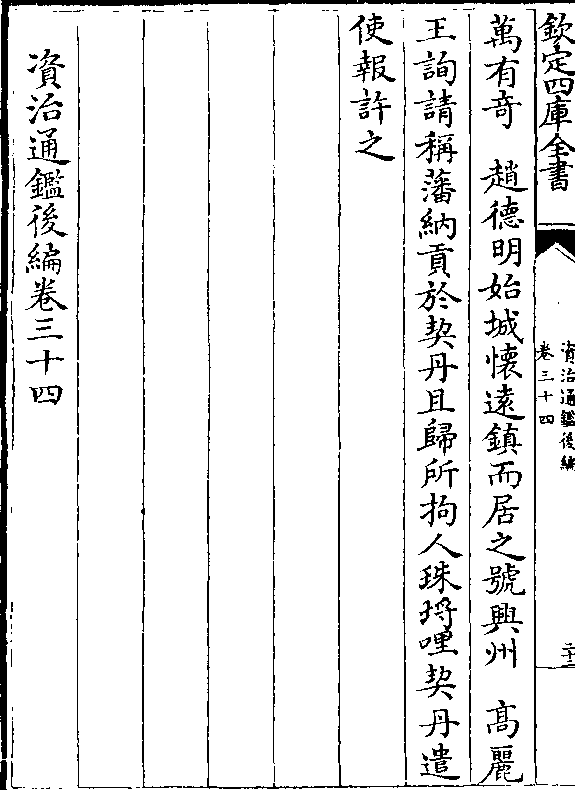 欽定四庫全書
資治通鑑後編
卷三十四
萬有奇　趙德明始城懷遠鎮而居之號興州　髙麗
王詢請稱藩納貢於契丹且歸所拘人珠埒哩契丹遣
使報許之
資治通鑑後編卷三十四